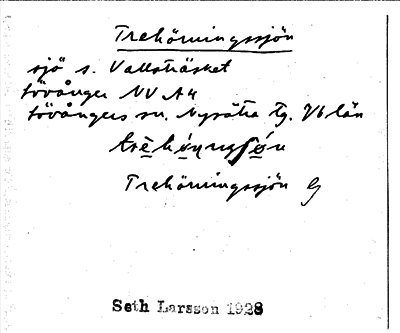 Trehörningssjön
sjö s. Vallsträsket
Lövånger NV A4
Lövångers sn. Nysätra tg. Vb län
Trehörningssjön G
Seth Larsson 1928